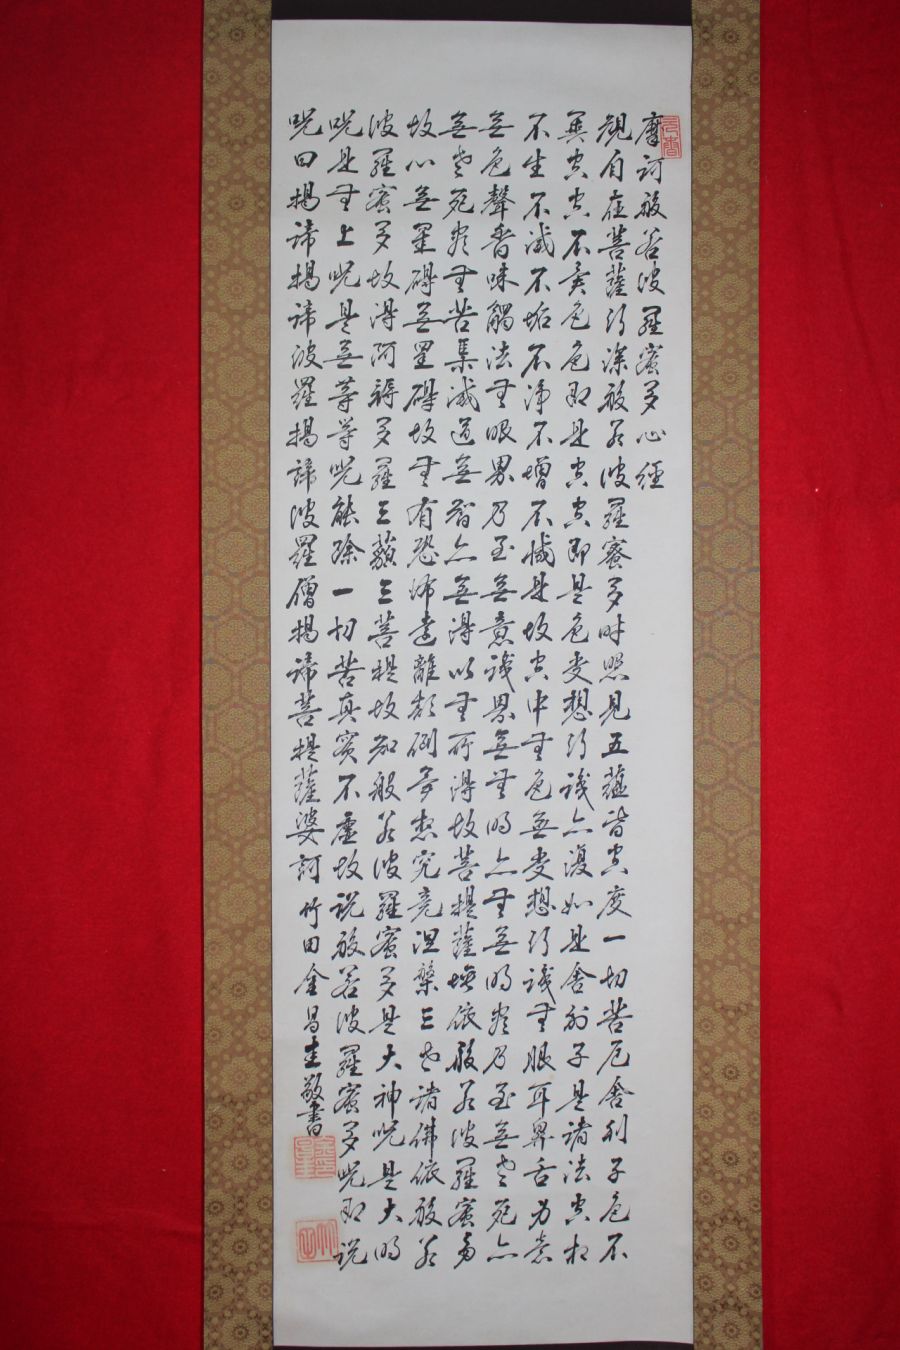 摩訶般若波羅蜜多心經
觀自在菩薩行深般若波羅蜜多時照見五蘊皆空度一切苦厄舍利子色不
異空空不異色色即是空空即是色受想行識亦復如是舍利子是諸法空相
不生不滅不垢不淨不增不減是故空中無色無受想行識無眼耳鼻舌身意
無色聲香味觸法無眼界乃至無意識界無無明亦無無明盡乃至無老死亦
無老死盡無苦集滅道無智亦無得以無所得故菩提薩埵依般若波羅蜜多
故心無罣礙無罣礙故無有恐怖遠離顛倒夢想究竟涅槃三世諸佛依般若
波羅蜜多故得阿耨多羅三藐三菩提故知般若波羅蜜多是大神呪是大明
呪是無上呪是無等等呪能除一切苦真實不虛故説般若波羅蜜多呪即説
呪曰揭諦揭諦波羅揭諦波羅僧揭諦菩提薩婆訶 竹田金昌圭敬書